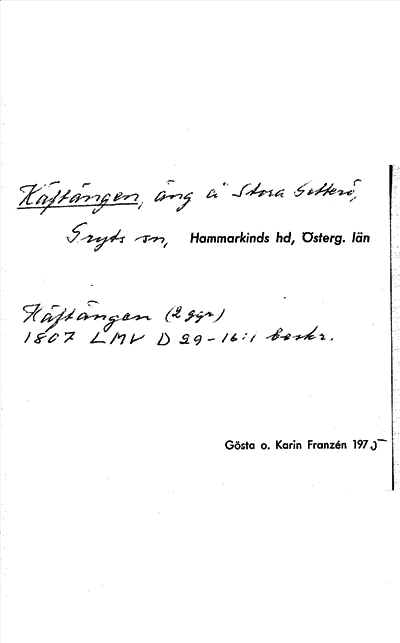 Käftängen, äng å Stora Getterö,
Gryts sn, Hammarkinds hd, Österg. län
Käftängen (2 ggr)
1807 LMV D 29-16:1 beskr.
Gösta o. Karin Franzén 1975